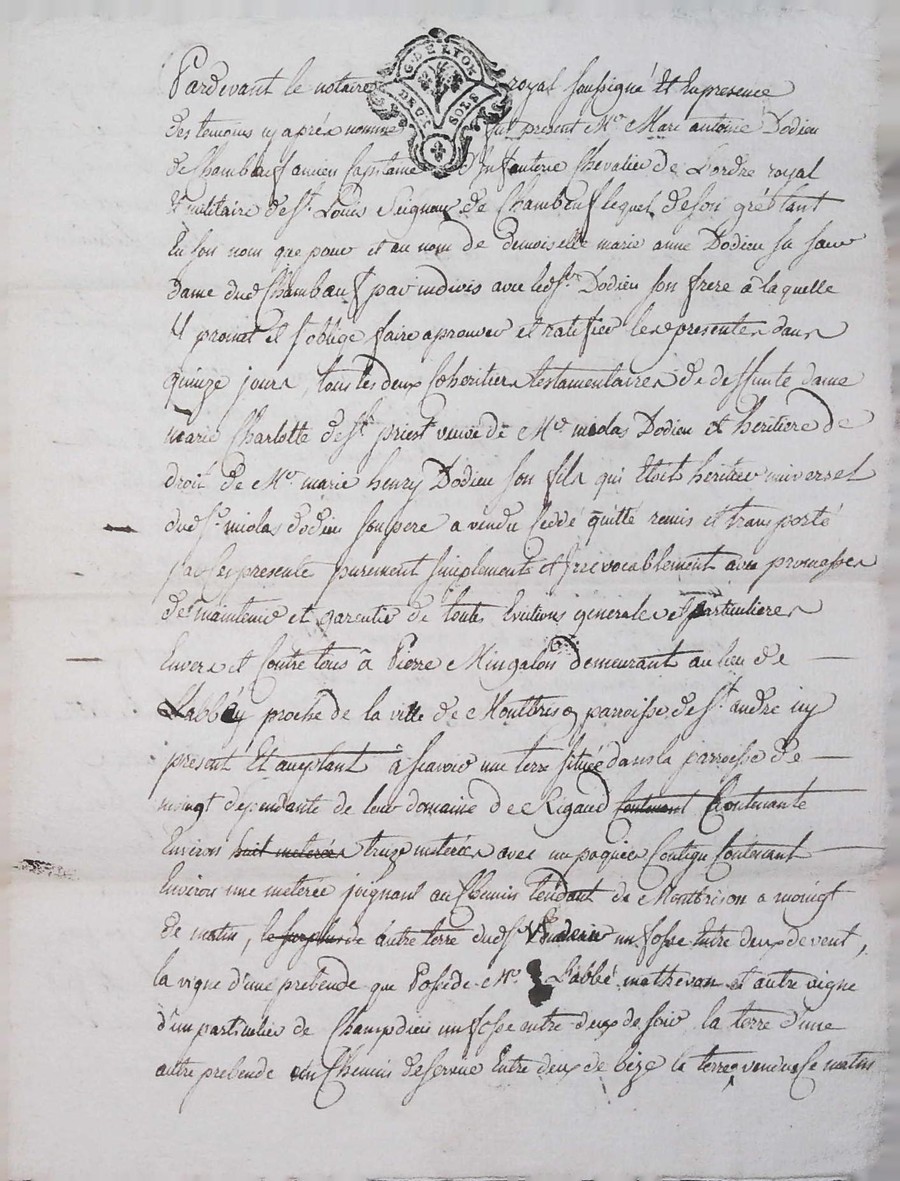 G. DE LYON
DEUX SOLS
Pardevant le notaire royal soussigné Et En presence
des temoins cy après nommés fut present Mr Marc antoine Dodieu
de Chambœuf ancien Capitaine d'Infanterie Chevalier de L'ordre royal
& militaire de St. Louis Seigneur de Chambœuf lequel de son gré tant
En son nom que pour et au nom de demoiselle marie anne Dodieu sa sœur
dame dud Chambœuf par indivis avec led Sr. Dodieu son frere à laquelle
Il promet et s'oblige faire aprouver et ratifier les presentes dans
quinze jours, tous les deux Coheritiers testamentaires de deffunte dame
marie Charlotte de St. priest veuve de Mr nicolas Dodieu et heritiere de
droit de Mr. marie henry Dodieu son fils qui Etoit heritier universel
dud Sr. nicolas dodieu son pere a vendu Ceddé quitté remis et transporté
par les presente purement simplement & Irrevocablement avec promesses
de maintenir et garentir de toutes Evictions generales et particulieres
Envers et Contre tous à Pierre Mingalon demeurant au lieu de
L'abbéy proche de la ville de Montbrison parroisse de St. andré icy
present Et aceptant à scavoir une terre située dans la parroisse de
moingt dependante de leur domaine de Rigaud Contenant Contenante
Environ huit meterées treize meterées avec un paquier Contigu Contenant
Environ une meterée joignant au Chemin tendant de Montbrison a moingt
de matin, le surplus de autre terre dud Sr un fosse Entre deux de vent,
la vigne d'une prebende que Possede Mr. L'abbé mathevon et autre vigne
d'un particulier de Champdieu un fosse entre deux de soir la terre d'une
autre prebende un Chemin deserrue Entre deux de bize la terre vendue le matin